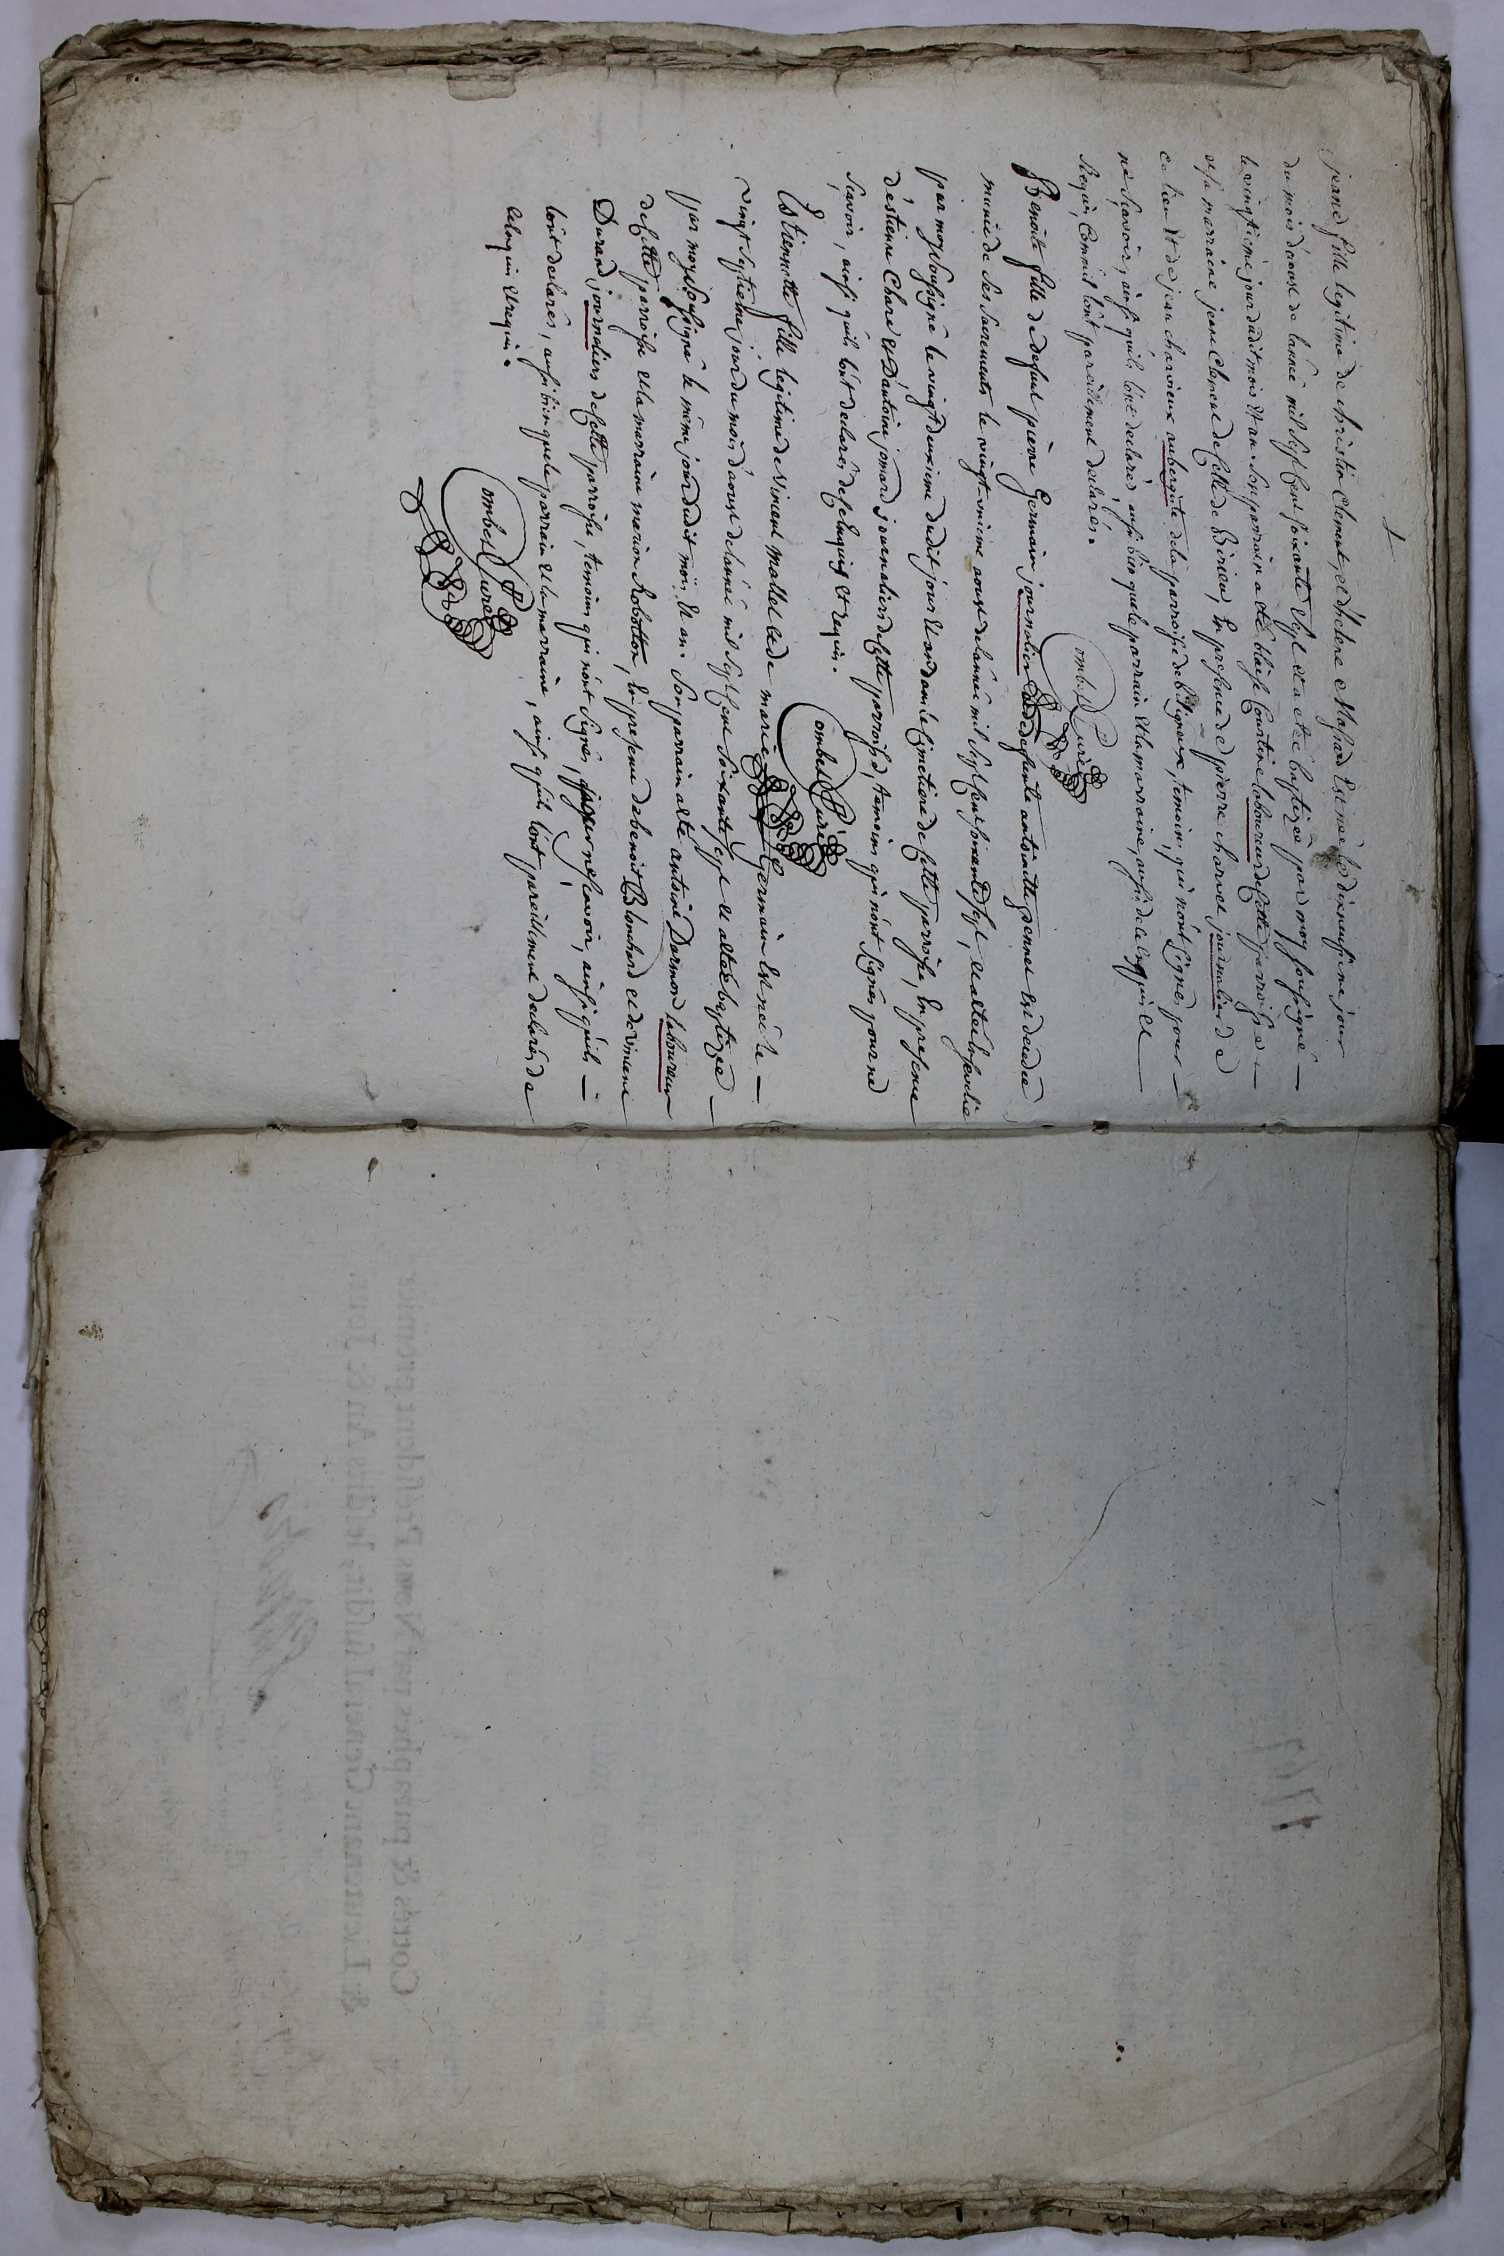 jeane fille legitime de christin Clement, et d'helene Massard Est née le dixneufvieme jour
du mois d'aoust de l'année mil sept cent soixante et sept et a eté baptizée par moy soussigné
le vingtieme jour dudit mois et an. Son parrain a eté blaise Contine laboureur de cette parroisse
et sa marraine jeane Clement de cette de Birieu, En presence de pierre charvet journalier de
ce lieu Et de jean charvieux aubergiste de la parroisse de temoins, qui n'ont signé, pour
ne sçavoir, ainsi qu'ils l'ont declaré aussi bien que le parrain et la marraine, aussi de ce enquis et
Requis Comm'ils l'ont pareillement declarés.
Combe Curé
Benoite fille de defunt pierre Germain journalier et de defunte antoinette gennet Est decedée
munie de ses sacrements le vingt-unieme aoust de l'année mil sept cent soixante sept, et a eté Ensevelie
par moy soussigné le vingt deuxieme dudit jour et an dans le Cimetiere de cette parroisse, En presence
d'estienne Chare et D'antoine jomard journaliers de cette parroisse, temoins qui n'ont signés pour ne
sçavoir, ainsi qu'ils l'ont declarés de ce Enquis et requis.
Combe Curé
Estiennette fille legitime de Vincent Mallet et de marie Germain Est née le
vingt septieme jour du mois d'aoust de l'année mil sept cent soixante sept et a eté baptizée
par moy soussigné le même jour dudit mois et an. Son parrain a eté antoine Dormond laboureur
de cette parroisse et la marraine marion Robotton, En presence de benoit Blanchard et de Vincent
Durand journaliers de cette parroisse, temoins qui n'ont signés, pour ne sçavoir, ainsi qu'ils
l'ont declarés, aussi bien que le parrain et la marraine, ainsi qu'ils l'ont pareillement declarés de
ce enquis et requis.
Combe Curé